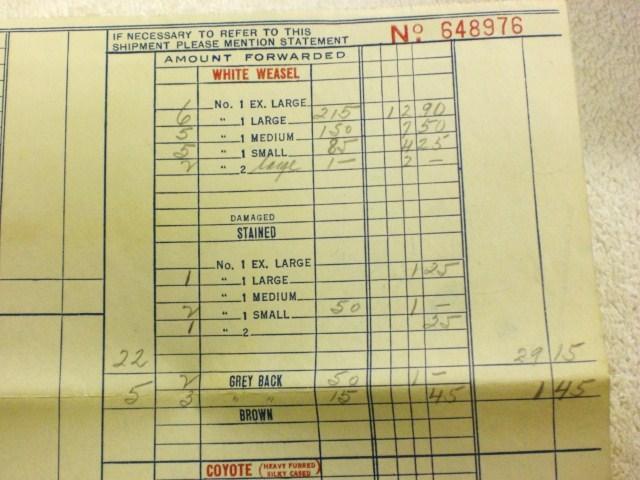 IF NECESSARY TO REFER TO THIS
SHIPMENT PLEASE MENTION STATEMENT
No 648976
AMOUNT FORWARDED
WHITE WEASEL
No. 1 EX. LARGE
6 " 1 LARGE 215 12 90
5 " 1 MEDIUM 150 7 50
5 " 1 SMALL 85 4 25
2 " 2 large 1 — 2 —
DAMAGED
STAINED
No. 1 EX. LARGE
1 " 1 LARGE 1 25
" 1 MEDIUM
2 " 1 SMALL 50 1 —
1 " 2 25
22 29 15
2 GREY BACK 50 1 —
5 3 " " 15 45 1 45
BROWN
COYOTE (HEAVY FURRED SILKY CASED)